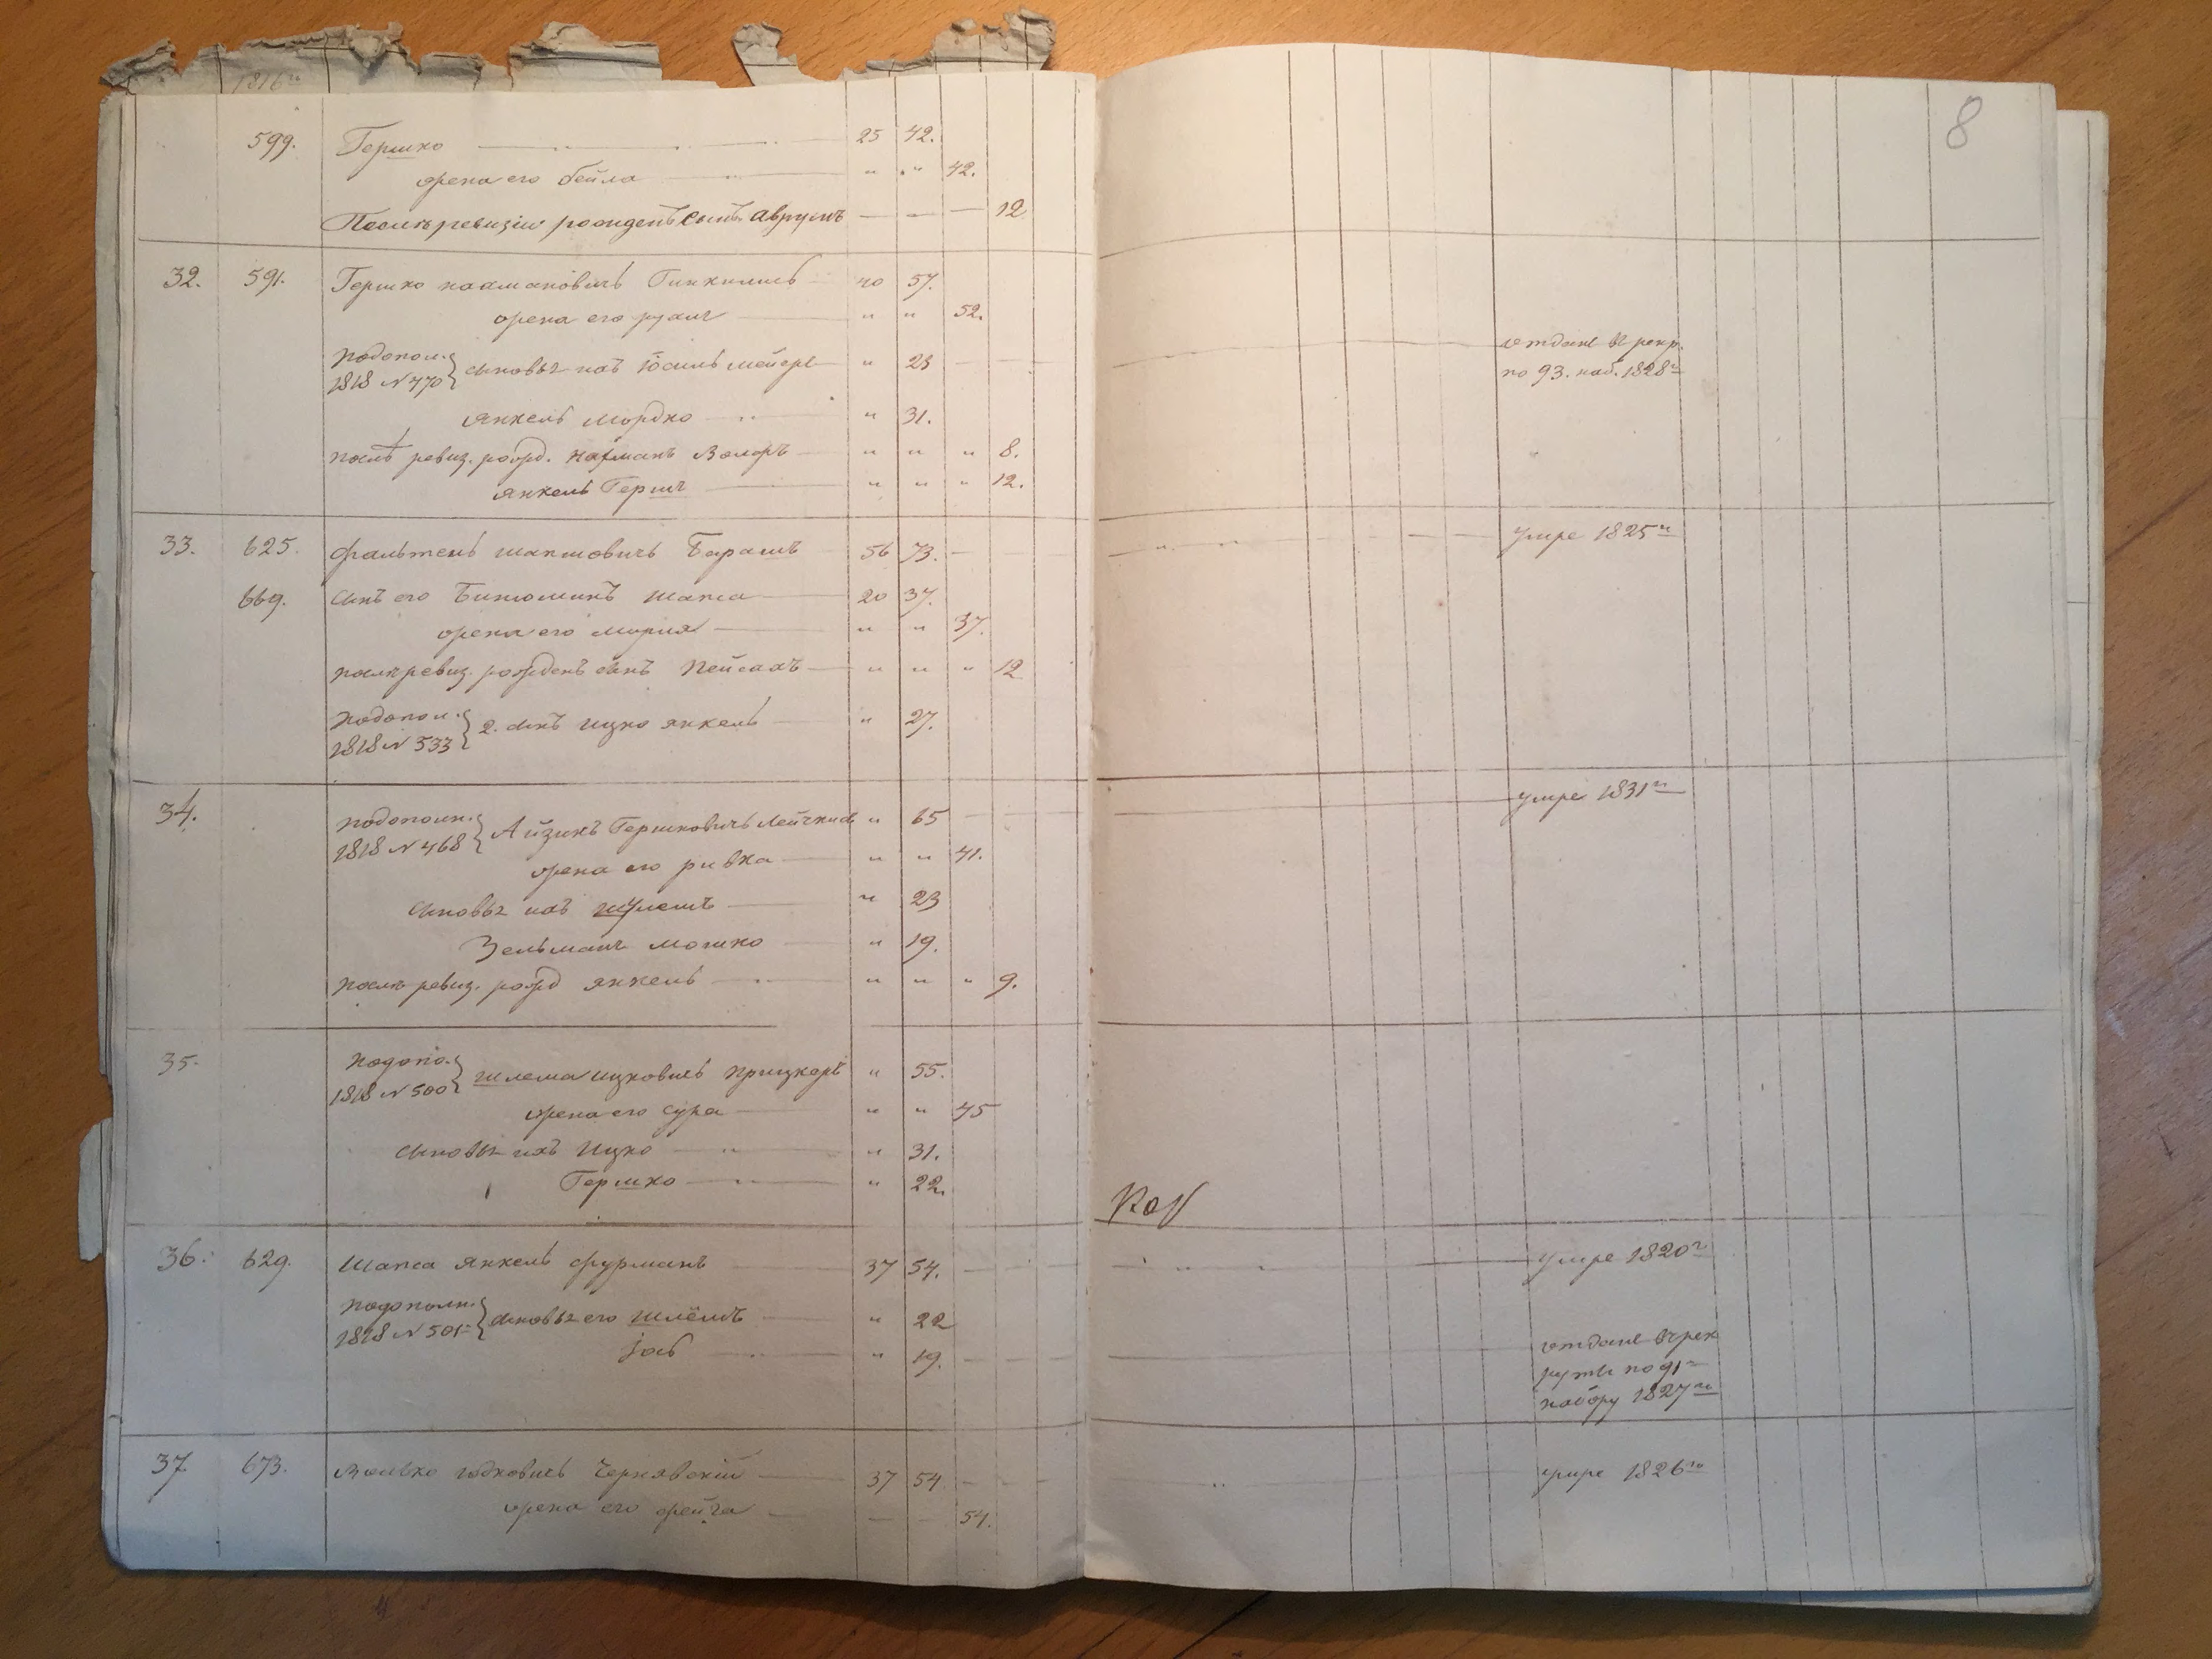 1816го
8
599. Гершко 25 42.
жена его бейла " " 42.
Послѣ ревизіи рожденъ сынъ Аврумъ — — — 12
32. 591. Гершко нахмановичъ 40 57.
жена его рухля " " 52.
подопол. 1818 N 470 } сыновья ихъ Іосиль мейеръ " 23 отданъ въ рекр.
по 93. наб. 1828го
Янкель Мордко " 31.
послѣ ревиз. рожд. Нахманъ Волфъ " " " 8.
Янкель Герш " " " 12.
33. 625. шапшовичъ Барашъ 56 73. умре 1825го
669. сынъ его Бинюминъ шапса 20 37.
жена его " " 37.
послѣ ревиз. рожденъ сынъ Пейсахъ " " " 12
подопол. 1818 N 533 } 2. сынъ ицко янкель " 27.
34. подополн. 1818 N 468 } Айзикъ Гершковичъ " 65 умре 1831го
жена его ривка " " 41.
сыновья ихъ шулемъ " 23
Зельманъ мошко " 19.
послѣ ревиз. рожд янкель " " " 9.
35. подопо. 1818 N 500 } шлема ицковичъ прицкеръ " 55.
жена его сура " " 45
сыновья ихъ Ицко " 31.
Гершко " 22.
36. 629. Шапса Янкель фурманъ 37 54. умре 1820го
подополн. 1818 N 501 } сыновья его шлёмъ " 22
" 19. отданъ въ рек
руты по 91м
набору 1827го
37. 673. Волько юдковичъ Чернявскій 37 54 умре 1826го
жена его фейга — — 54.